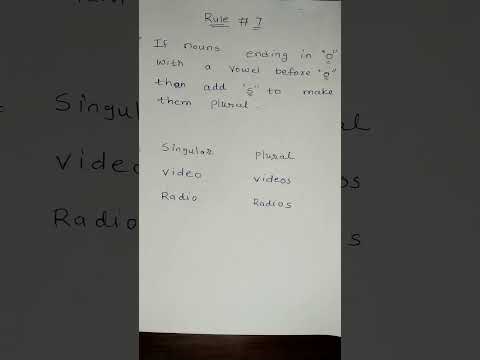 Rule # 7
If nouns ending in "o"
with a vowel before "o"
then add "s" to make
them plural.
Singular Plural
Video Videos
Radio Radios